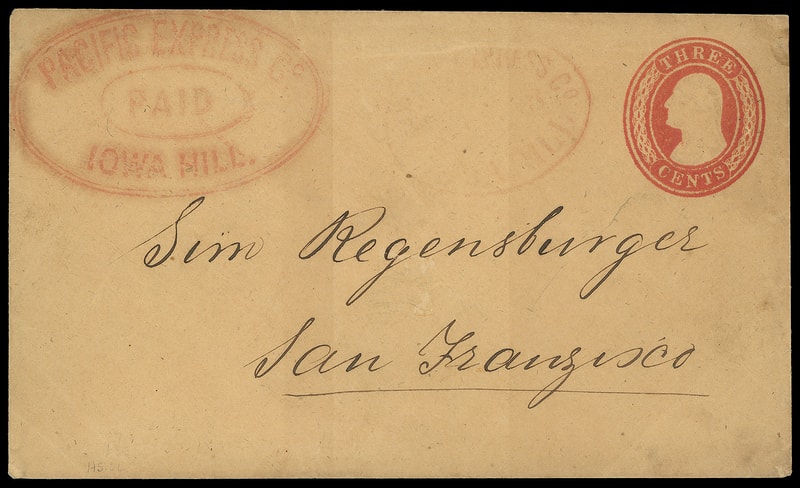 PACIFIC EXPRESS Co
PAID
IOWA HILL.
THREE
CENTS
Sim Regensburger
San Franzisco